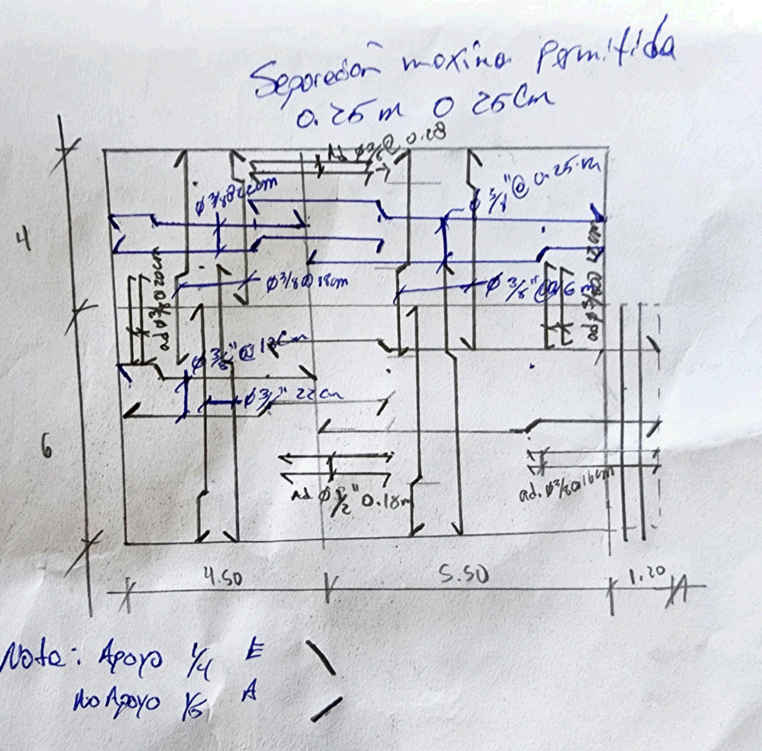 Separación maxima permitida
0.25m o 25cm
Ad Ø 3/8 @ 0.28
Ø 3/8 @ 22cm
Ø 3/8" @ 0.25 m
4
ad Ø 3/8 @ 20cm
Ø 3/8 @ 18cm
Ø 3/8" @
ad Ø 3/8 @
Ø 3/8" @ 18cm
Ø 3/8" 22cm
6
ad Ø 1/2" 0.18m
ad. Ø 3/8 @ 16cm
4.50
5.50
1.20
Nota: Apoyo 1/4 E
No Apoyo 1/5 A